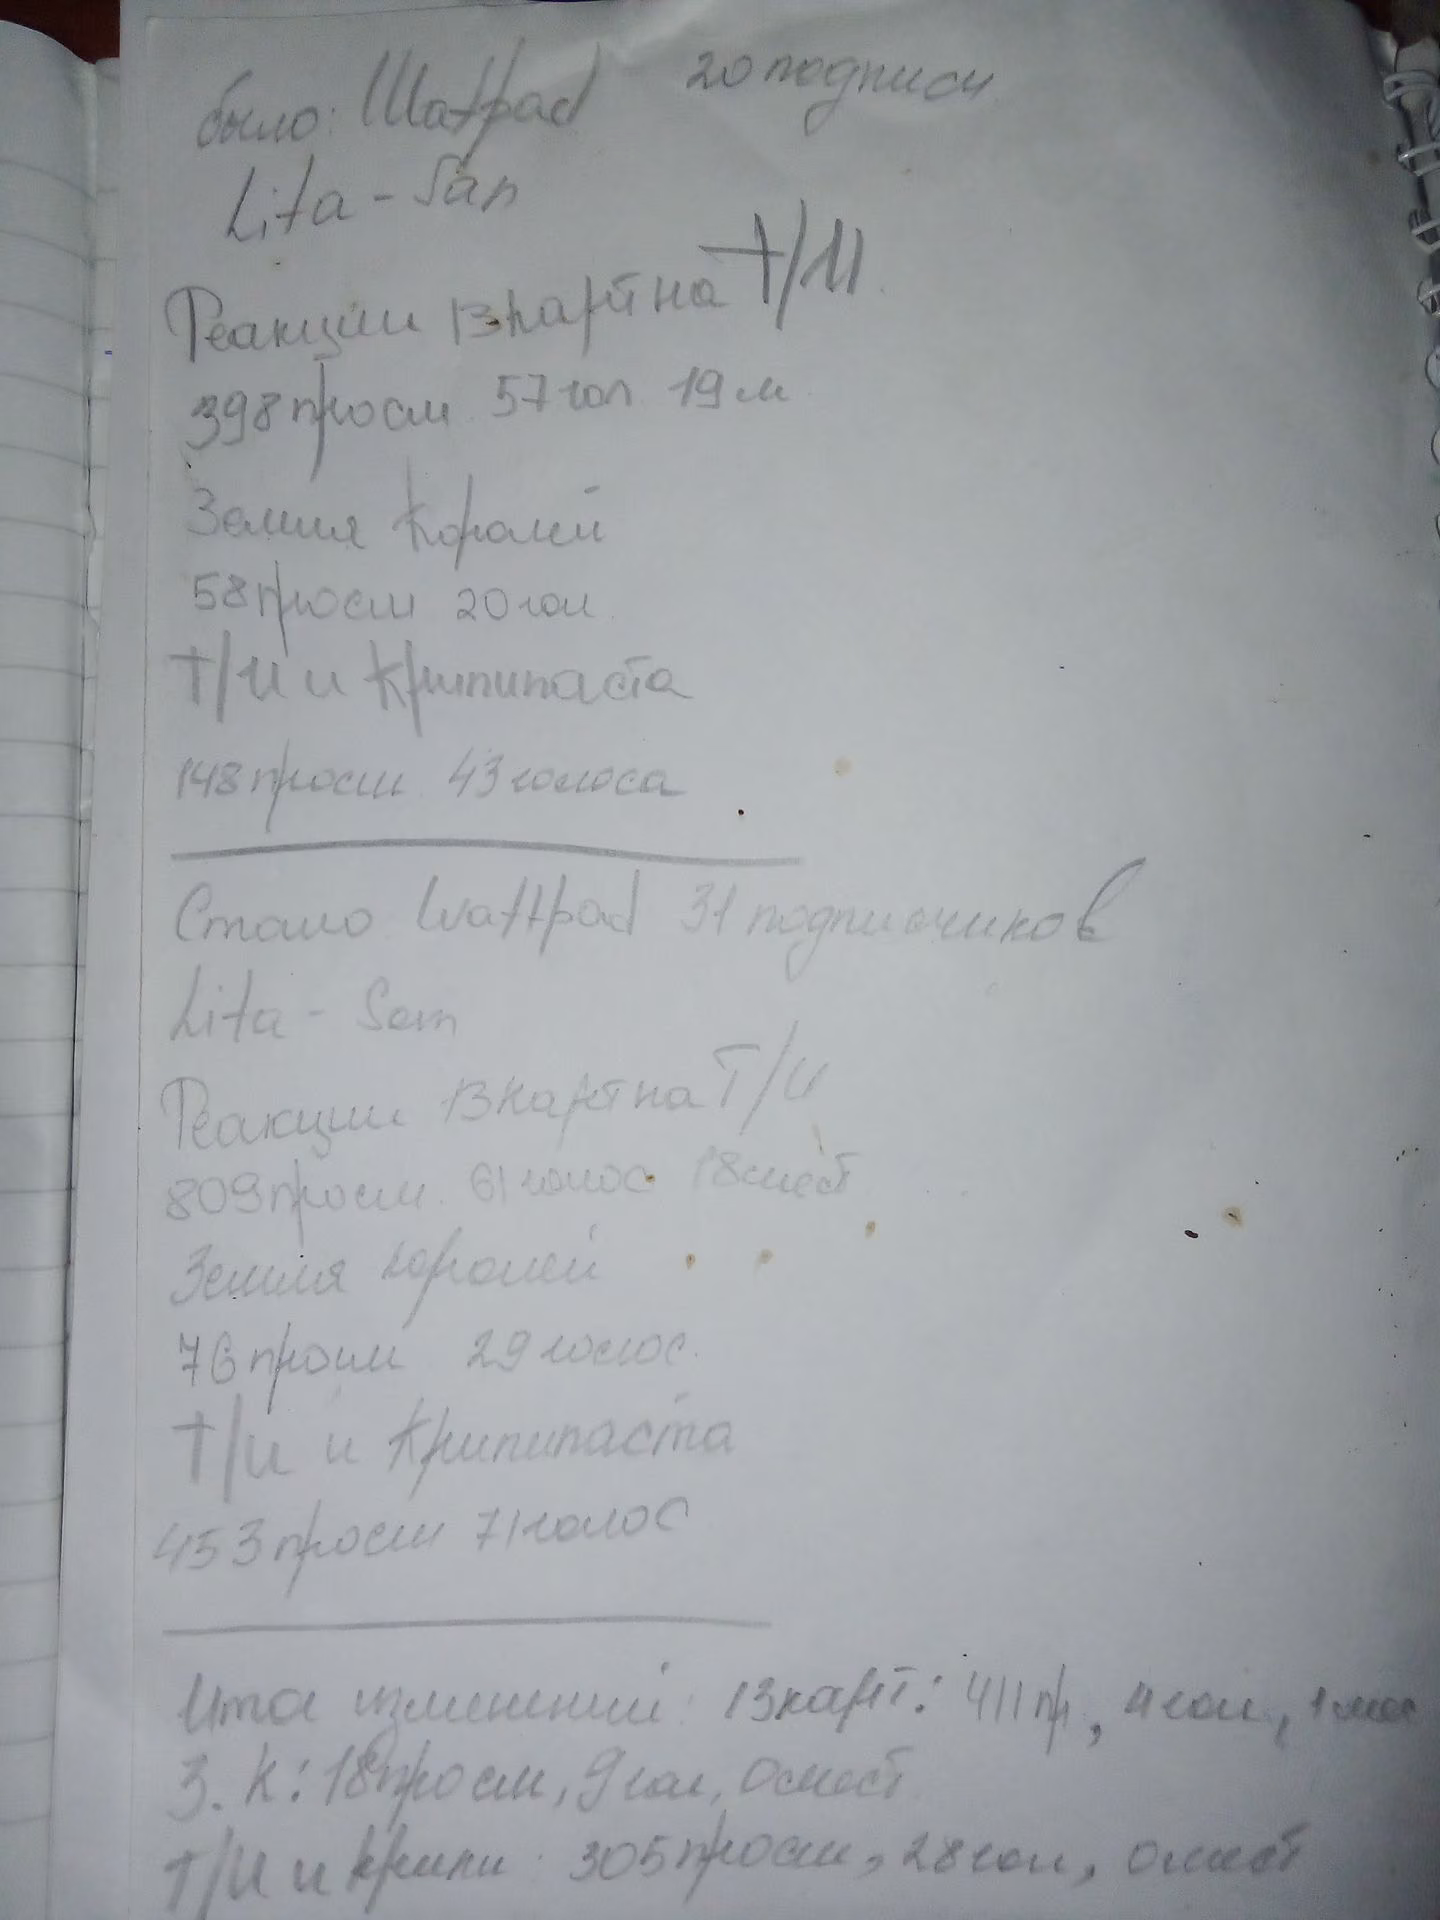 было: Wattpad 20 подписч
Lita - San
Реакции 13 карт на Т/И.
398 просм. 57 гол 19 м
Земля Королей
58 просм 20 гол.
Т/И и Крипипаста
148 просм 43 голоса
Стало Wattpad 31 подписчиков
Lita - San
Реакции 13 карт на Т/И
809 просм. 61 голос 18 мест
Земля королей
76 просм 29 голос.
Т/И и Крипипаста
453 просм 71 голос
Итог изменений: 13 карт: 411 пр, 4 гол, 1 мес
З. К: 18 просм, 9 гол, 0 мест
Т/И и крипи: 305 просм, 28 гол, 0 мест